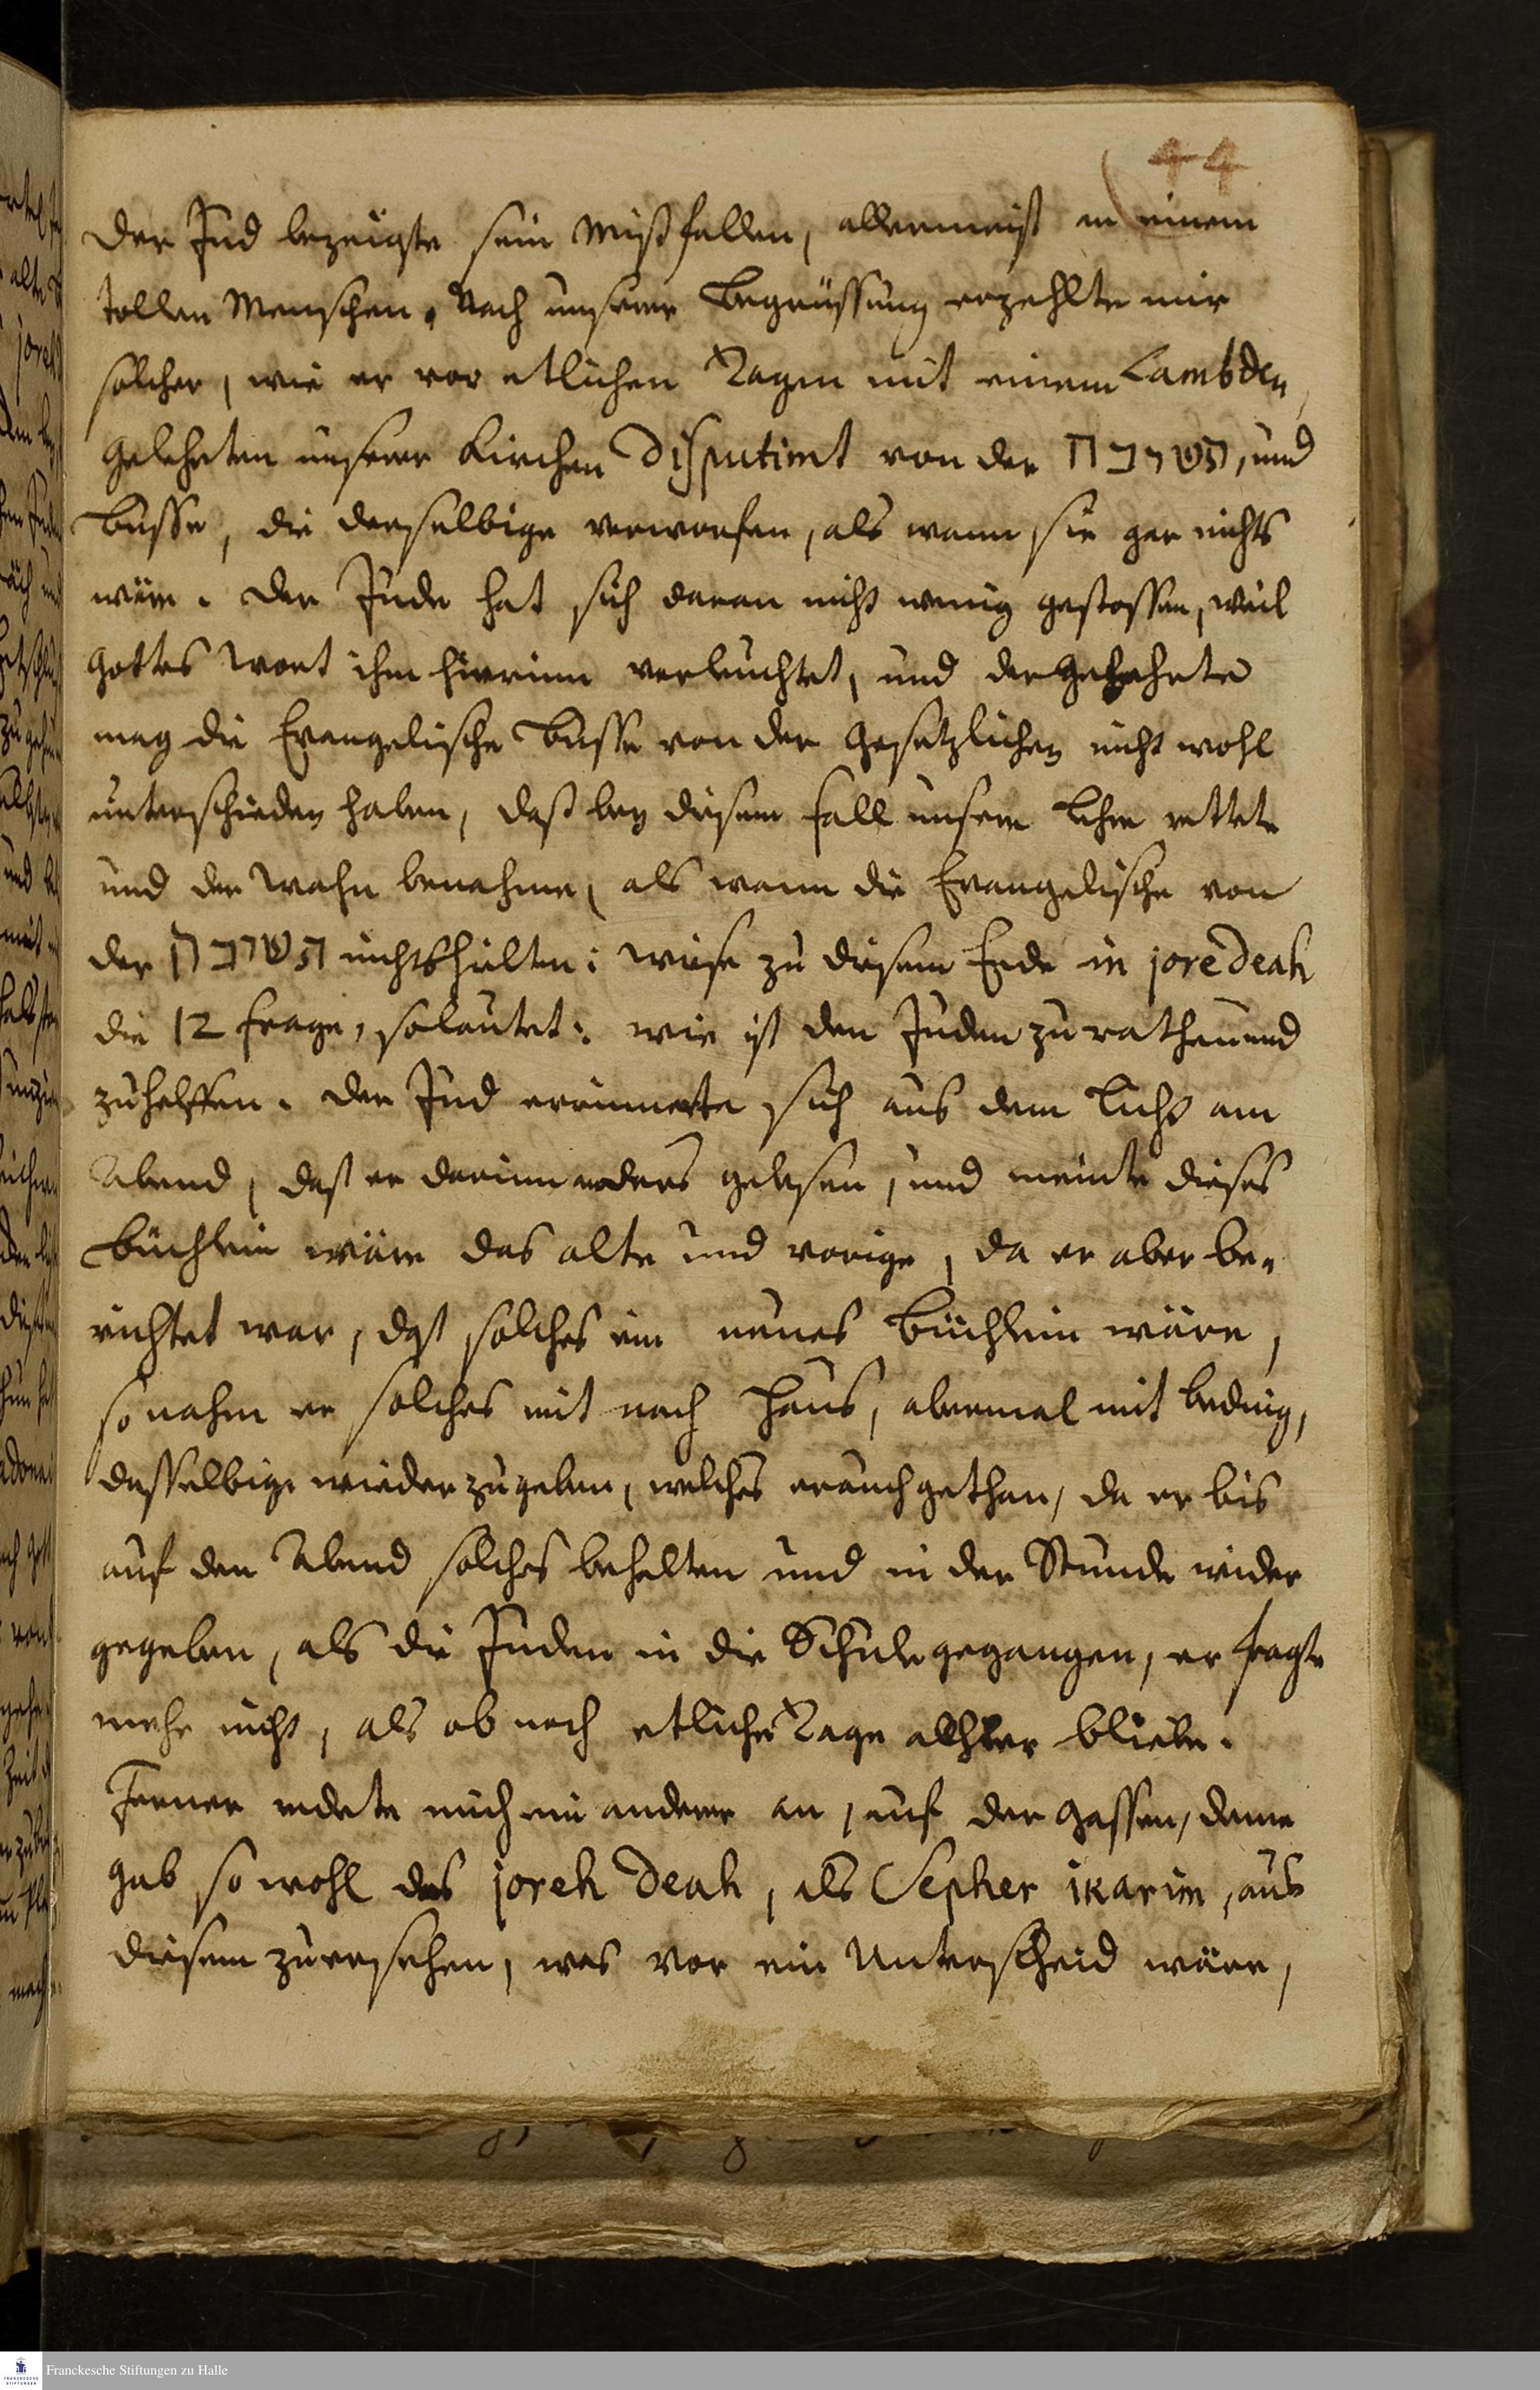 44
Der Jud bezeigte sein Mißfallen, allermeist an einem
tollen Menschen. Nach unserer Begrüssung erzehlte mir
solcher, wie er vor etlichen Tagen mit einem Lambden,
gelehrten unserer Kirchen disputirt von der תשובה, und
Busse, die derselbige verworfen, als wann sie gar nichts
wäre. Der Jude hat sich daran nicht wenig gestossen, weil
Gottes Wort ihm hierinn vorleuchtet, und der Gelehrte
mag die Evangelische Busse von der Gesetzlichen nicht wohl
unterschieden haben, daß bey diesem Fall unsere Lehre rettete
und den Wahn benahme, als wann die Evangelische von
der תשובה nichts hielten: wiese zu diesem Ende in jore deah
die 12 Frage, so lautet: wie ist den Juden zu rathen und
zu helffen. Der Jud erinnerte sich aus dem Licht am
Abend, daß er darinn anders gelesen, und meinte dieses
Büchlein wäre das alte und vorige, da er aber be-
richtet war, daß solches ein neues Büchlein wäre,
so nahm er solches mit nach Haus, abermal mit beding,
dasselbige wieder zu geben, welches er auch gethan, da er bis
auf den Abend solches behalten und in der Stunde wider
gegeben, als die Juden in die Schule gegangen, er fragte
mehr nicht, als ob noch etliche Tage allhier bliebe.
Ferner redete mich ein anderer an, auf der Gassen, deme
gab so wohl das joreh deah, als Sepher ikarim, aus
diesem zu ersehen, was vor ein Unterscheid wäre,
Franckesche Stiftungen zu Halle